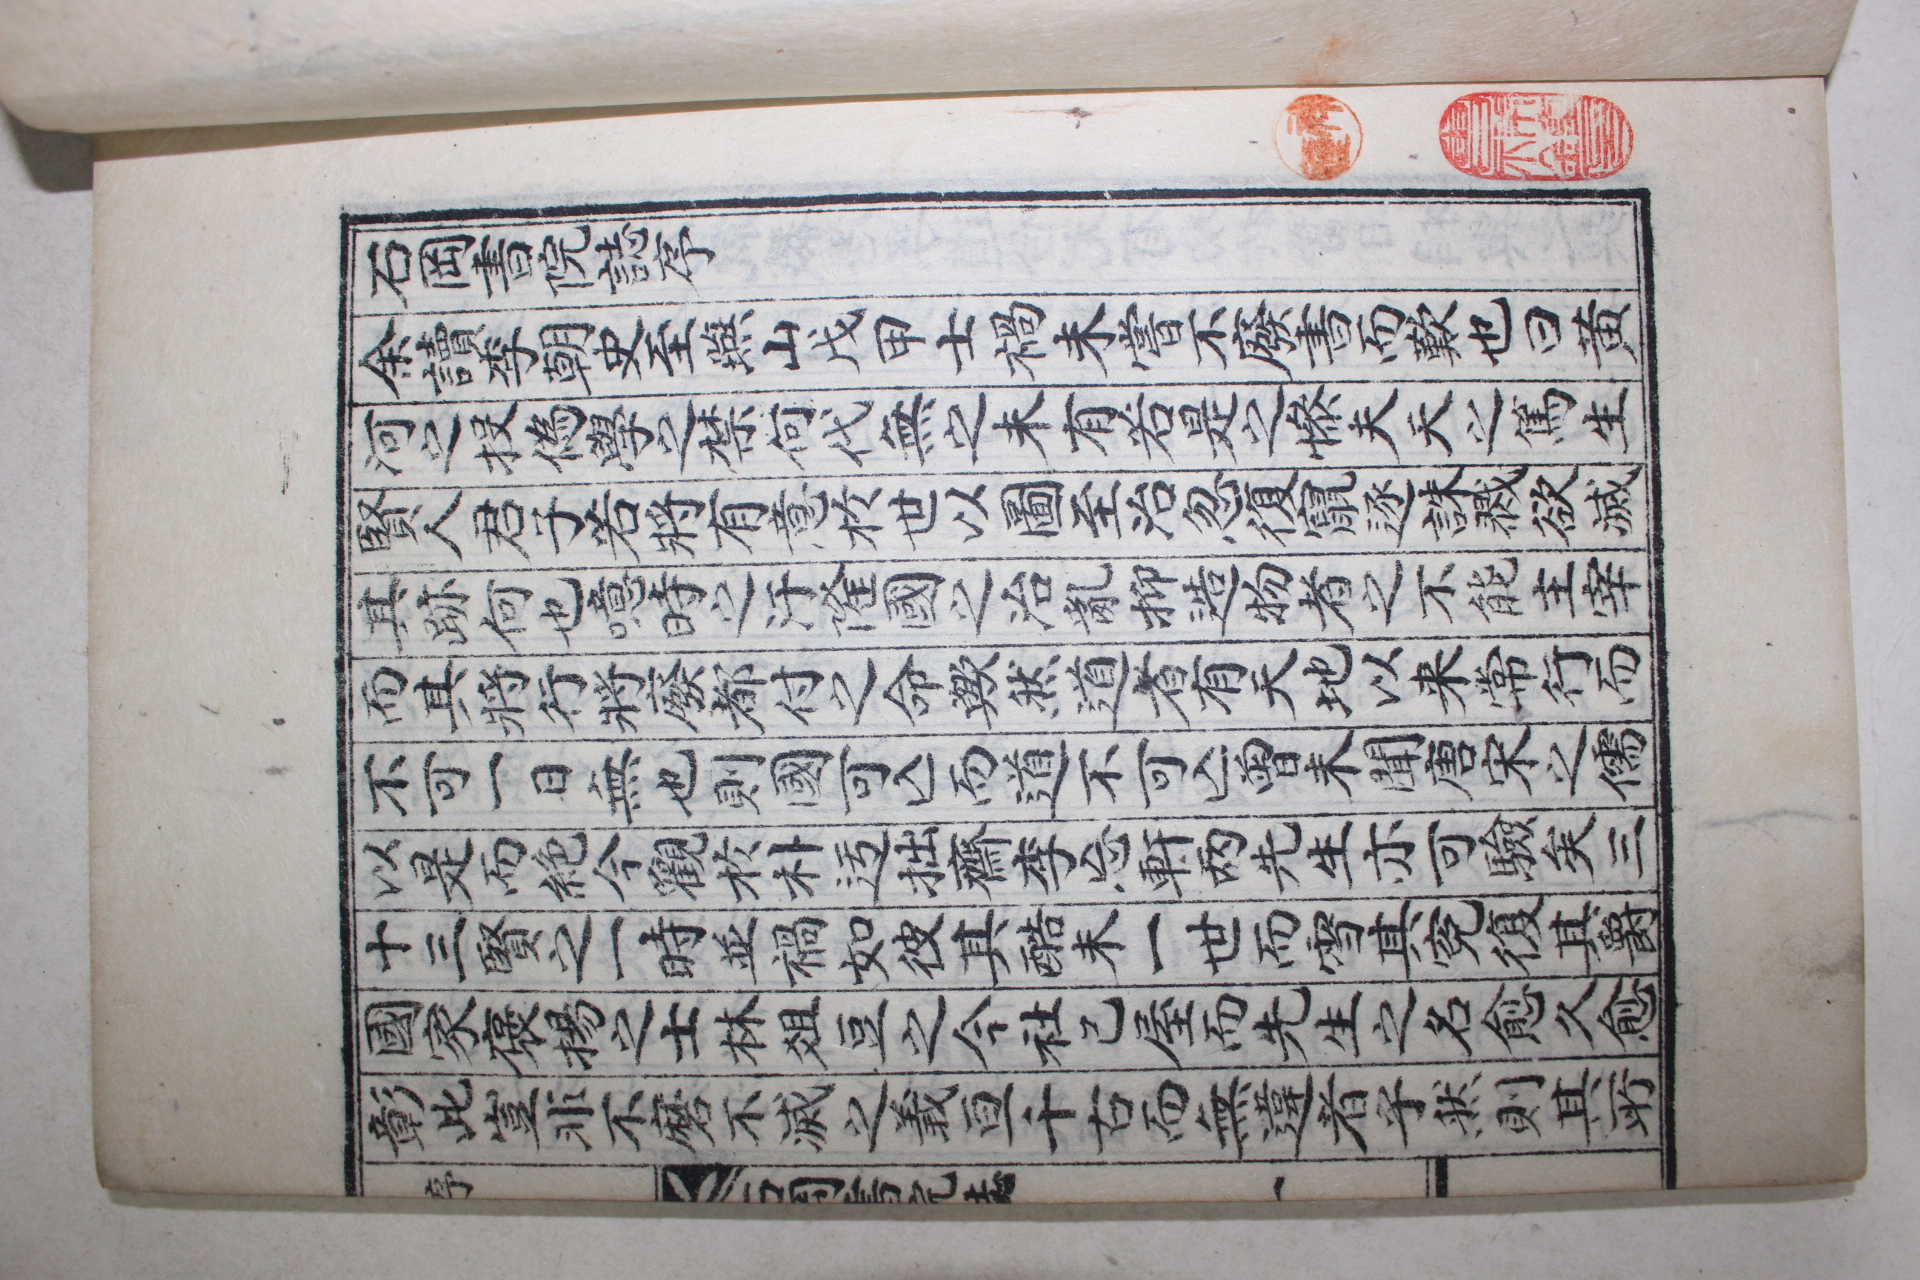 石岡書院誌序
余讀李朝史至燕山戊甲士禍未嘗不廢書而歎也曰黃
河之投僞學之禁何代無之未有若是之慘夫天之篤生
賢人君子若將有意於世以圖至治忽復竄逐誅戮欲滅
其跡何也噫時之汙隆國之治亂抑造物者之不能主宰
而其將行將廢都付之命歟然道者有天地以来常行而
不可一日無也則國可亾而道不可亾曽未聞唐宋之儒
以是而絶今觀於朴迃拙齋李忘軒两先生亦可驗矣三
十三賢之一時並禍如彼其酷未一世而雪其冤復其爵
國家褒揚之士林俎豆之今社已屋而先生之名愈久愈
彰此豈非不磨不滅之義亘千古而無違者乎然則其所
序 石岡書院誌 一